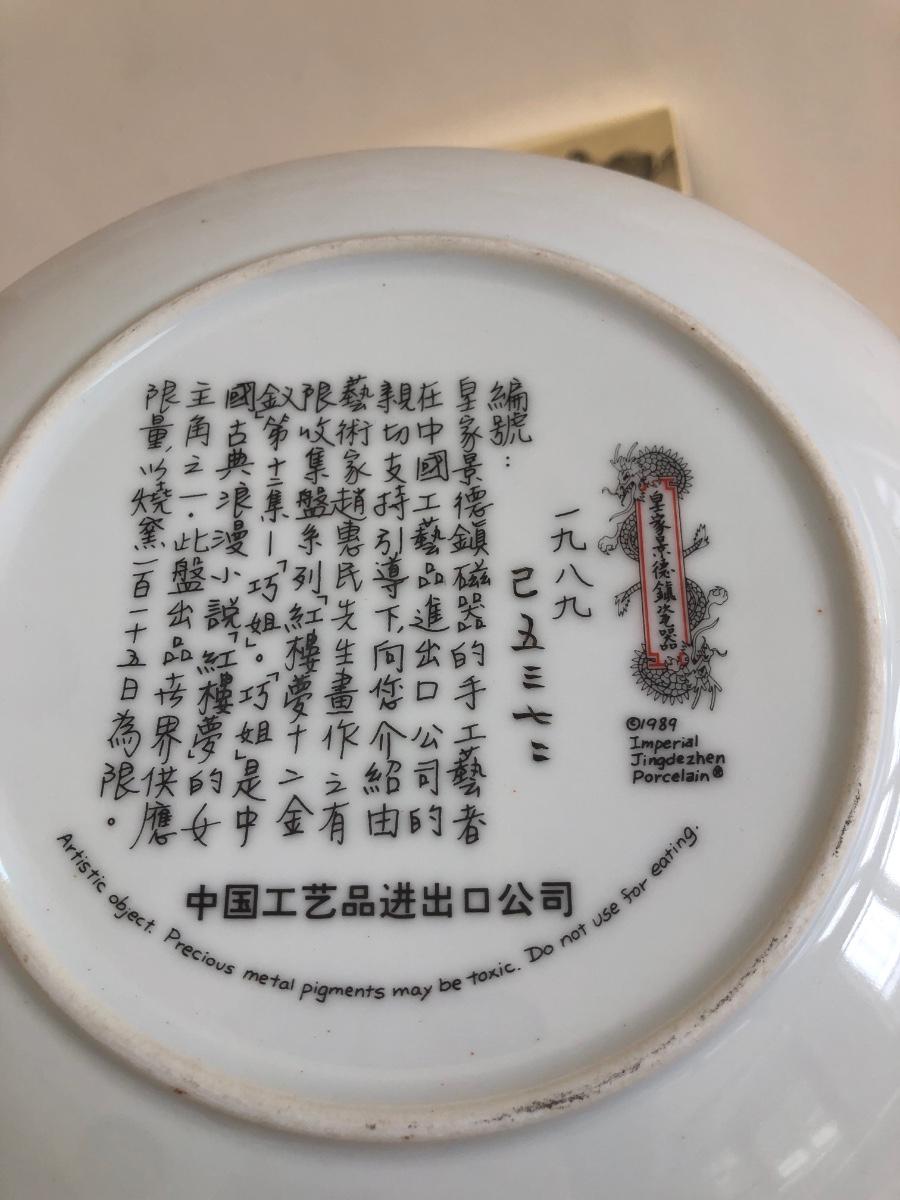 皇家景德鎮瓷器
©1989
Imperial
Jingdezhen
Porcelain®
一九八九
編號:
己五三七二
皇家景德鎮磁器的手工藝者
在中國工藝品進出口公司的
親切支持引導下,向您介紹由
藝術家趙惠民先生畫作之有
限收集盤系列「紅樓夢十二金
釵」第十二集—「巧姐」。「巧姐」是中
國古典浪漫小說「紅樓夢」的女
主角之一.此盤出品世界供應
限量,以燒窯一百一十五日為限。
中国工艺品进出口公司
Artistic object. Precious metal pigments may be toxic. Do not use for eating.